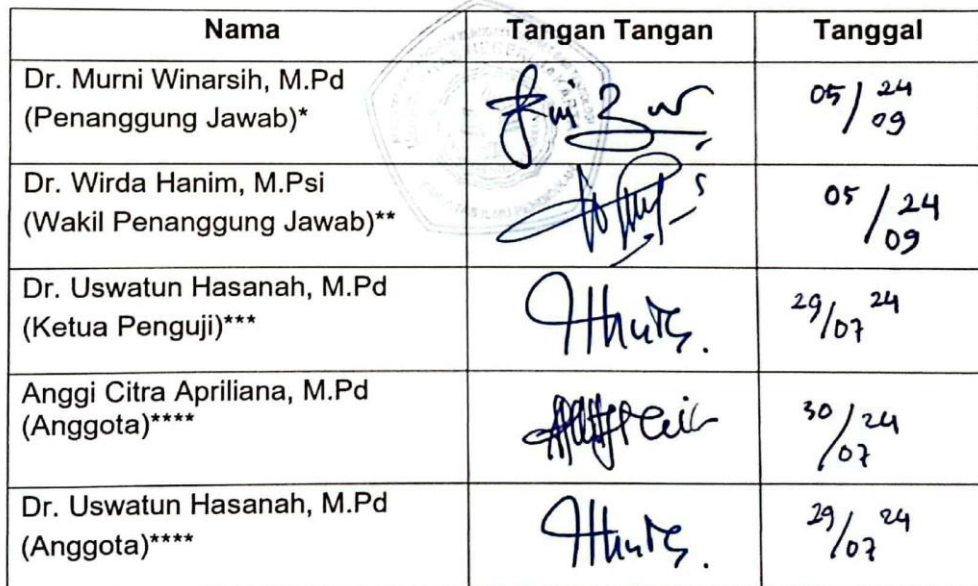 Nama Tangan Tangan Tanggal
Dr. Murni Winarsih, M.Pd
(Penanggung Jawab)*
05/09 24
Dr. Wirda Hanim, M.Psi
(Wakil Penanggung Jawab)**
05/09 24
Dr. Uswatun Hasanah, M.Pd
(Ketua Penguji)***
29/07 24
Anggi Citra Apriliana, M.Pd
(Anggota)****
30/07 24
Dr. Uswatun Hasanah, M.Pd
(Anggota)****
29/07 24